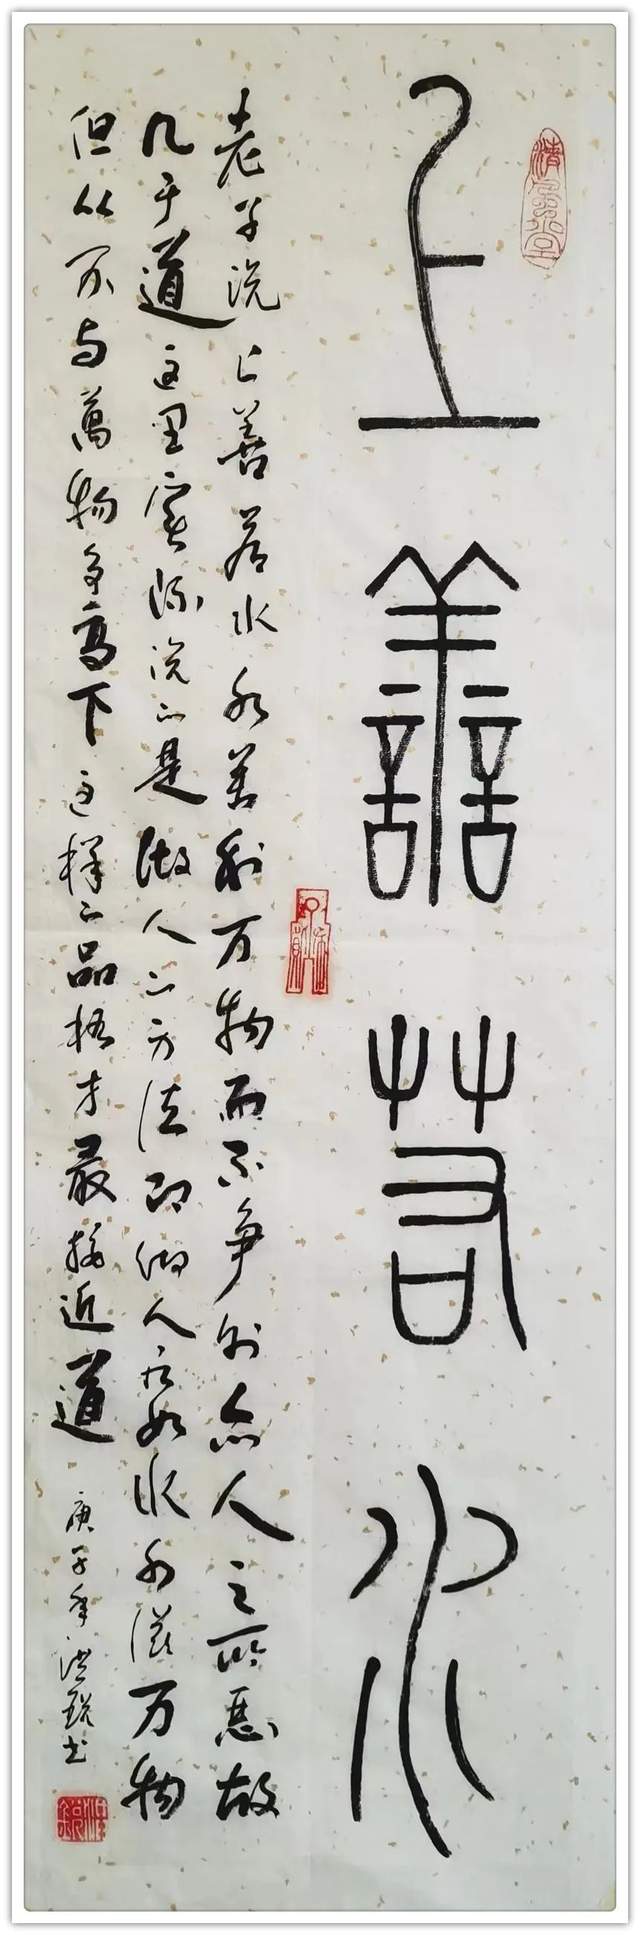 上善若水
老子说上善若水水善利万物而不争处众人之所恶故
几于道这里实际说的是做人的方法即做人应如水水滋万物
但从不与萬物争高下这样的品格才最接近道
庚子年洪锐书